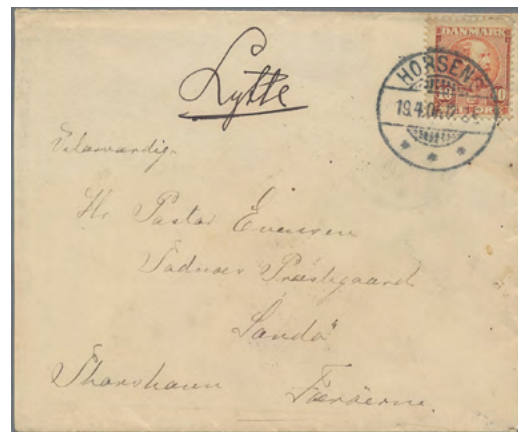 DANMARK
HORSENS
19.4.0
Lytte
Velærværdig.
Hr Pastor Evensen
Præstegaard
Sandø
Thorshavn Færöerne.